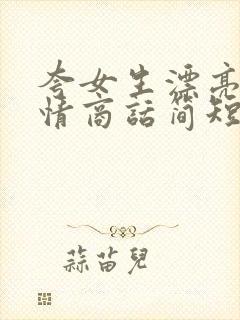 夸女生漂亮
情商話简短
蒜苗兒